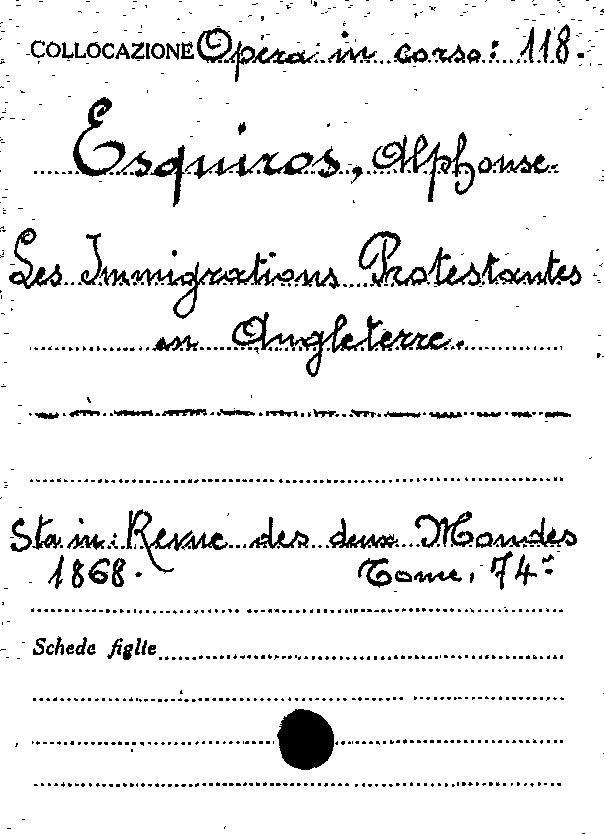 COLLOCAZIONE Opera in corso: 118.
Esquiros, Alphonse.
Les Immigrations Protestantes
en Angleterre.
Sta in: Revue des deux Mondes
1868. Tome, 74º
Schede figlie